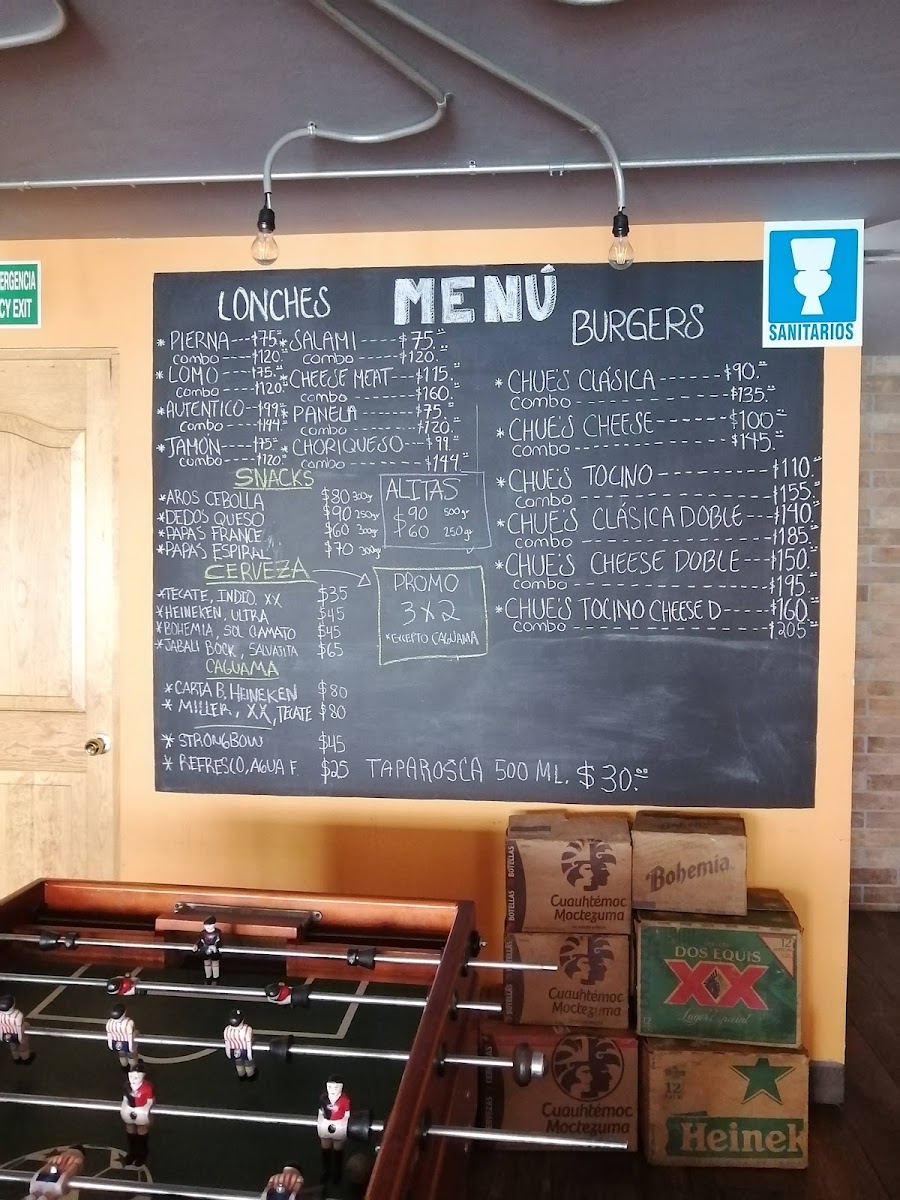 ERGENCIA
CY EXIT
SANITARIOS
MENÚ
LONCHES
* PIERNA---$75.=
combo---$120.=
* LOMO---$75.=
combo---$120
* AUTENTICO--$99.=
combo---$144.=
* JAMÓN----$75.=
combo---$120.=
* SALAMI----$75.=
combo----$120.=
* CHEESE MEAT---$115.=
combo-----$160.=
* PANELA----$75.=
combo-----$120.=
* CHORIQUESO---$99.=
combo-----$144.=
SNACKS
*AROS CEBOLLA $80 300gr
*DEDOS QUESO $90 250gr
*PAPAS FRANCE $60 300gr
*PAPAS ESPIRAL $70 300gr
ALITAS
$90 500gr
$60 250gr
CERVEZA
*TECATE, INDIO, XX $35
*HEINEKEN, ULTRA $45
*BOHEMIA, SOL CLAMATO $45
*JABALI BOCK, SALVAJITA $65
PROMO
3X2
*EXCEPTO CAGUAMA
CAGUAMA
*CARTA B, HEINEKEN $80
* MILLER, XX, TECATE $80
* STRONGBOW $45
* REFRESCO, AGUA F. $25
TAPAROSCA 500 ML. $30.00
BURGERS
* CHUE'S CLÁSICA------$90.=
combo------$135.=
* CHUE'S CHEESE------$100.=
combo------$145.=
* CHUE'S TOCINO------$110.=
combo------$155.=
* CHUE'S CLÁSICA DOBLE---$140.=
combo------$185.=
* CHUE'S CHEESE DOBLE---$150.=
combo------$195.=
* CHUE'S TOCINO CHEESE D-----$160.=
combo------$205.=
BOTELLAS
Cuauhtémoc
Moctezuma
Bohemia
BOTELLAS
Cuauhtémoc
Moctezuma
12
DOS EQUIS
XX
Lager Especial
12
Cuauhtémoc
Moctezuma
12
Heinek